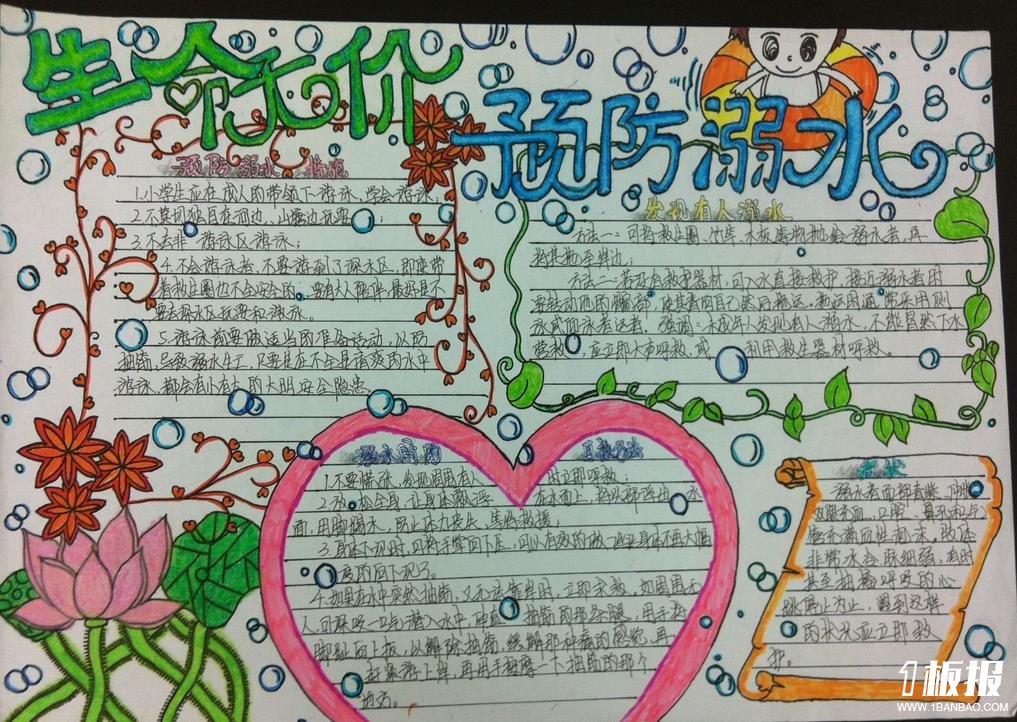 生命无价
预防溺水
预防溺水 措施
1.小学生应在成人的带领下游泳,学会游泳;
2.不要独自在河边、山塘边玩耍;
3.不去非游泳区游泳;
4.不会游泳者,不要游到了深水区,即使带
着救生圈也不会安全的。要有大人陪伴,最好是不
要去深水区玩耍和游泳。
5.游泳前要做适当的准备活动,以防
抽筋,导致溺水
游泳,都会有的安全隐患
发现有人溺水
方法一:可将救生圈、竹竿、木板等物抛给溺水者,再
将其拖至岸边;
方法二:若没有救护器材,可入水直接救护。接近溺水者时
要转动他的髋部,使其背向自己然后拖运。拖运时通常采用侧
泳或仰泳拖运者。强调:未成年人发现有人溺水,不能冒然下水
营救,应立即大声呼救,或利用救生器材呼救。
溺水时的自救方法
1.不要慌张,发现周围有人时立即呼救;
2.放松全身,让身体飘浮在水面上,将头部浮出水
面,用脚踢水,防止体力丧失,等待救援;
3.身体下沉时,可将手掌向下压,可以有效的做
度的向下沉了。
4.如果在水中突然抽筋,又无法靠岸时,立即求救。如周围无
人,可深吸一口气潜入水中,伸直抽筋的那条腿,用手将
脚趾向上扳,以解除抽筋。
赶紧游上岸,再用手按摩一下抽筋的那个
地方。
症状
溺水者面部青紫、
双眼充血,口腔、鼻孔和气
管充满血性泡沫。肢体
非常冰冷,脉细弱,有时
甚至抽搐呼吸的心
跳停止为止,遇到这样
的状况应立即救
护。
1板报
WWW.1BANBAO.COM